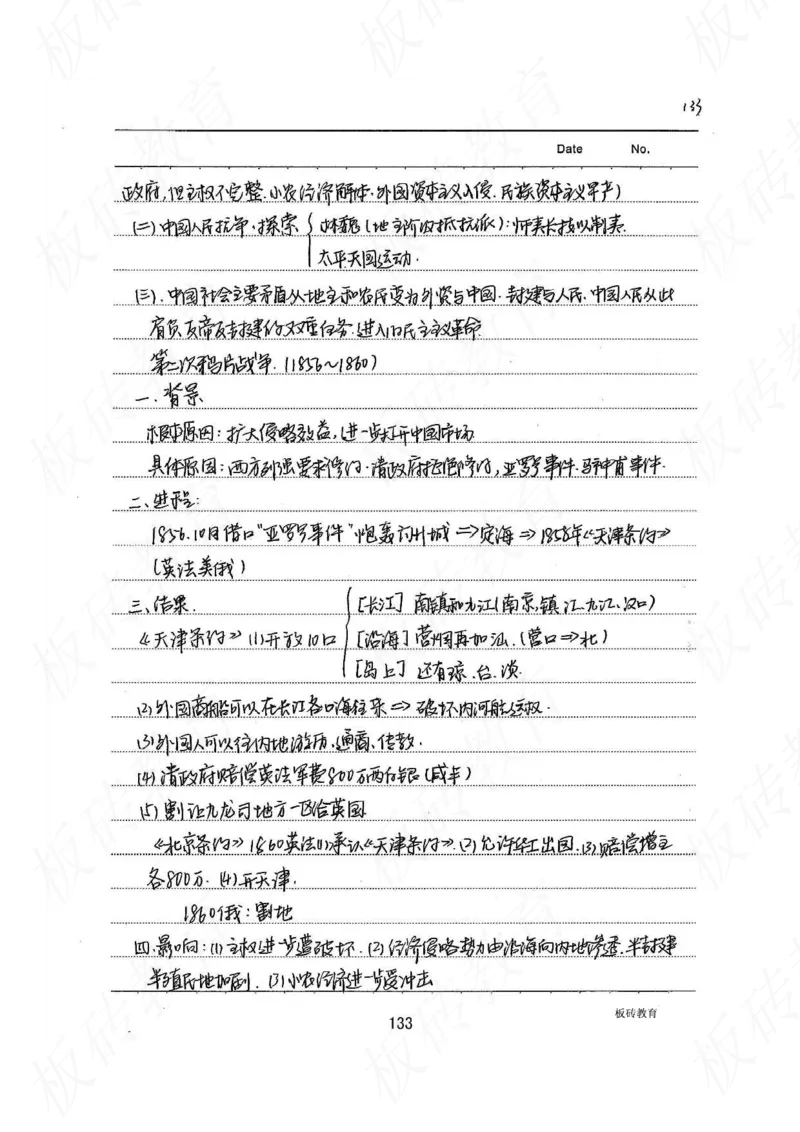 133
Date No.
政府,但主权不完整.小农经济解体.外国资本主义入侵.民族资本主义早产)
(二)中国人民抗争.探索 林魏(地主阶级抵抗派):师夷长技以制夷.
太平天国运动.
(三).中国社会主要矛盾从地主和农民变为外资与中国.封建与人民.中国人民从此
肩负反帝反封建的双重任务.进入旧民主主义革命.
第二次鸦片战争.(1856~1860)
一.背景
根本原因:扩大侵略效益,进一步打开中国市场
具体原因:西方列强要求修约.清政府拒绝修约,亚罗号事件.马神甫事件.
二、进程:
1856.10月借口"亚罗号事件"炮轰广州城⇒定海⇒1858年《天津条约》
(英法美俄)
三、结果.
[长江] 南镇和九江(南京,镇江.九江、汉口)
《天津条约》(1)开放10口 [沿海] 营烟再加汕.(营口⇒北)
[岛上] 还有琼.台.淡.
(2)外国商船可以在长江各口海往来⇒破坏内河航运权.
(3)外国人可以往内地游历、通商、传教.
(4)清政府赔偿英法军费800万两白银(咸丰)
(5)割让九龙司地方一区给英国
《北京条约》1860英法(1)承认《天津条约》.(2)允许华工出国.(3)赔偿增至
各800万.(4)开天津.
1860俄:割地
四.影响:(1)主权进一步遭破坏.(2)经济侵略势力由沿海向内地渗透.半封建
半殖民地加剧.(3)小农经济进一步受冲击
133
板砖教育